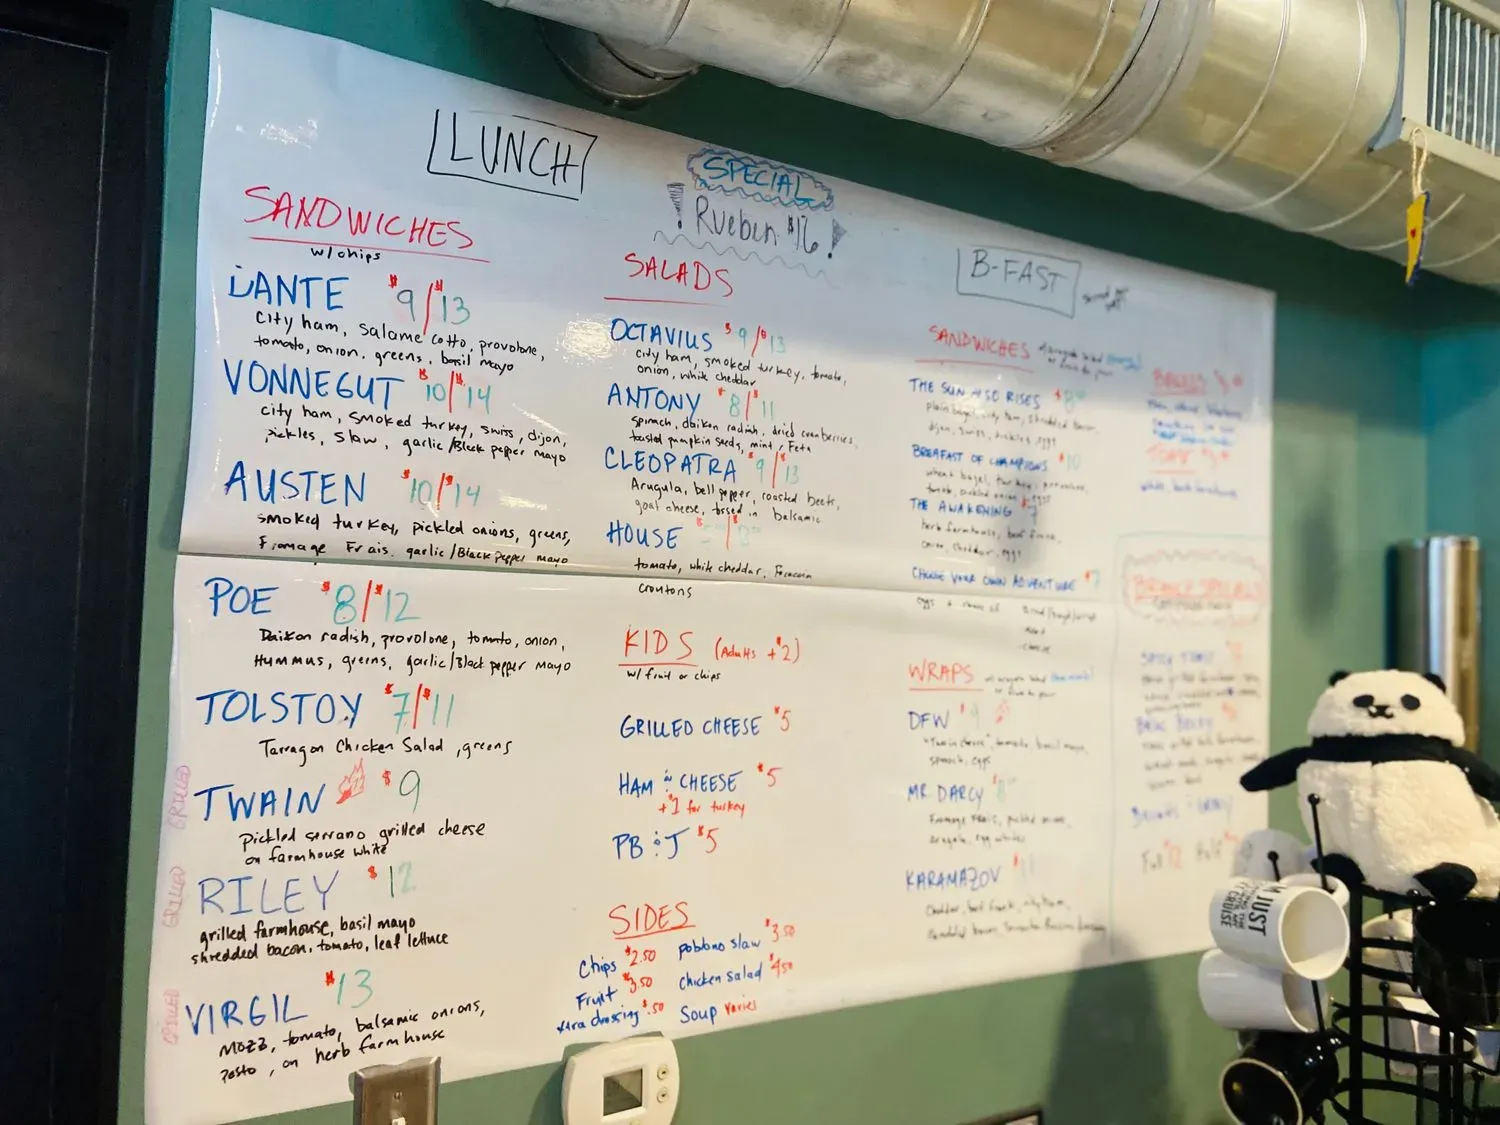 LUNCH
SPECIAL
! Rueben $16 !
SANDWICHES
w/chips
DANTE $9/$13
city ham, salame cotto, provolone,
tomato, onion, greens, basil mayo
VONNEGUT $10/$14
city ham, smoked turkey, swiss, dijon,
pickles, slaw, garlic/Black pepper mayo
AUSTEN $10/$14
smoked turkey, pickled onions, greens,
Fromage Frais, garlic/Black pepper mayo
POE $8/$12
Daikon radish, provolone, tomato, onion,
Hummus, greens, garlic/Black pepper mayo
TOLSTOY $7/$11
Tarragon Chicken Salad, greens
GRILLED
TWAIN $9
pickled serrano grilled cheese
on farmhouse white
GRILLED
RILEY $12
grilled farmhouse, basil mayo
shredded bacon, tomato, leaf lettuce
GRILLED
VIRGIL $13
mozz, tomato, balsamic onions,
pesto, on herb farmhouse
SALADS
OCTAVIUS $9/$13
city ham, smoked turkey, tomato,
onion, white cheddar
ANTONY $8/$11
spinach, daikon radish, dried cranberries,
toasted pumpkin seeds, mint, Feta
CLEOPATRA $9/$13
Arugula, bell pepper, roasted beets,
goat cheese, tossed in balsamic
HOUSE
tomato, white cheddar, Focaccia
croutons
KIDS (Adults +$2)
w/ fruit or chips
GRILLED CHEESE $5
HAM & CHEESE $5
+$1 for turkey
PB & J $5
SIDES
Chips $2.50
Fruit $3.50
xtra dressing $.50
poblano slaw $3.50
chicken salad $4.50
Soup varies
B-FAST
SANDWICHES
THE SUN ALSO RISES $8
plain bagel, city ham, shredded bacon,
dijon, swiss, pickles, eggs
BREAFAST OF CHAMPIONS $10
wheat bagel, turkey, provolone,
tomato, pickled onion, eggs
THE AWAKENING $7
herb farmhouse, beef frank,
onion, cheddar, eggs
CHOOSE YOUR OWN ADVENTURE $7
eggs +
cheese
WRAPS
DFW $9
tomato, basil mayo,
spinach, eggs
MR DARCY $8
Fromage Frais, pickled onion,
arugula, egg whites
KARAMAZOV
Cheddar, beef frank,
BAGELS
TOAST
BRUNCH SPECIALS
Full Half
I'M JUST
CRUISE